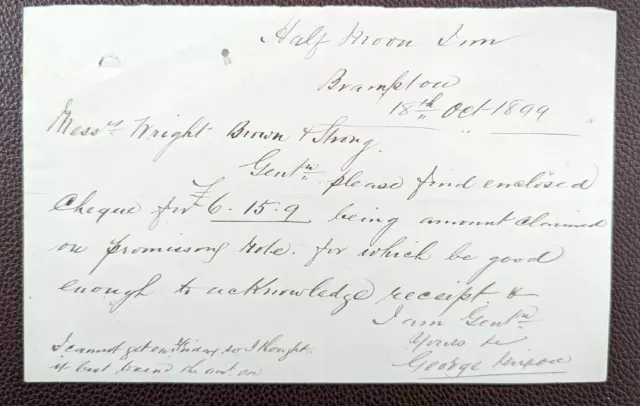 Half Moon Inn
Brampton
18th Oct 1899
Messrs Wright Brown & Strong
Gentn please find enclosed
Cheque for £6-15-9 being amount claimed
on promissory Note. for which be good
enough to acknowledge receipt &
I am Gentn
Yours &c
George
I cannot get on Friday so I thought
it best to send the amt on